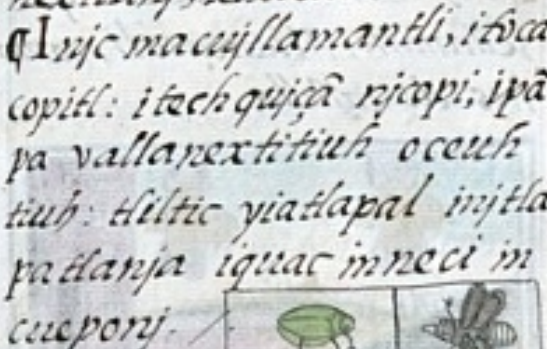 ¶Injc macujllamantli, itoca
copitl: itech quiçã njcopi, ipã
pa vallanextitiuh oceuh
tiuh: tliltic yiatlapal injtla
patlanja iquac in neci in
cueponj.